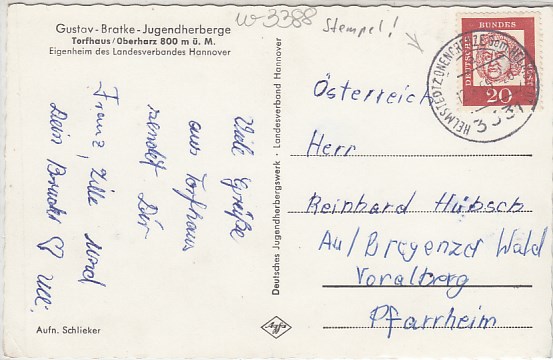 w-3388
Stempel!
Gustav-Bratke-Jugendherberge
Torfhaus/Oberharz 800 m ü. M.
Eigenheim des Landesverbandes Hannover
Viele Grüße
aus Torfhaus
sendet Dir
Franz,
Dein
Aufn. Schlieker
Deutsches Jugendherbergswerk · Landesverband Hannover
Agfa
DEUTSCHE BUNDESPOST
20
HELMSTEDT
3331
Österreich
Herr
Reinhard Hübsch
Au/Bregenzer Wald
Voralberg
Pfarrheim